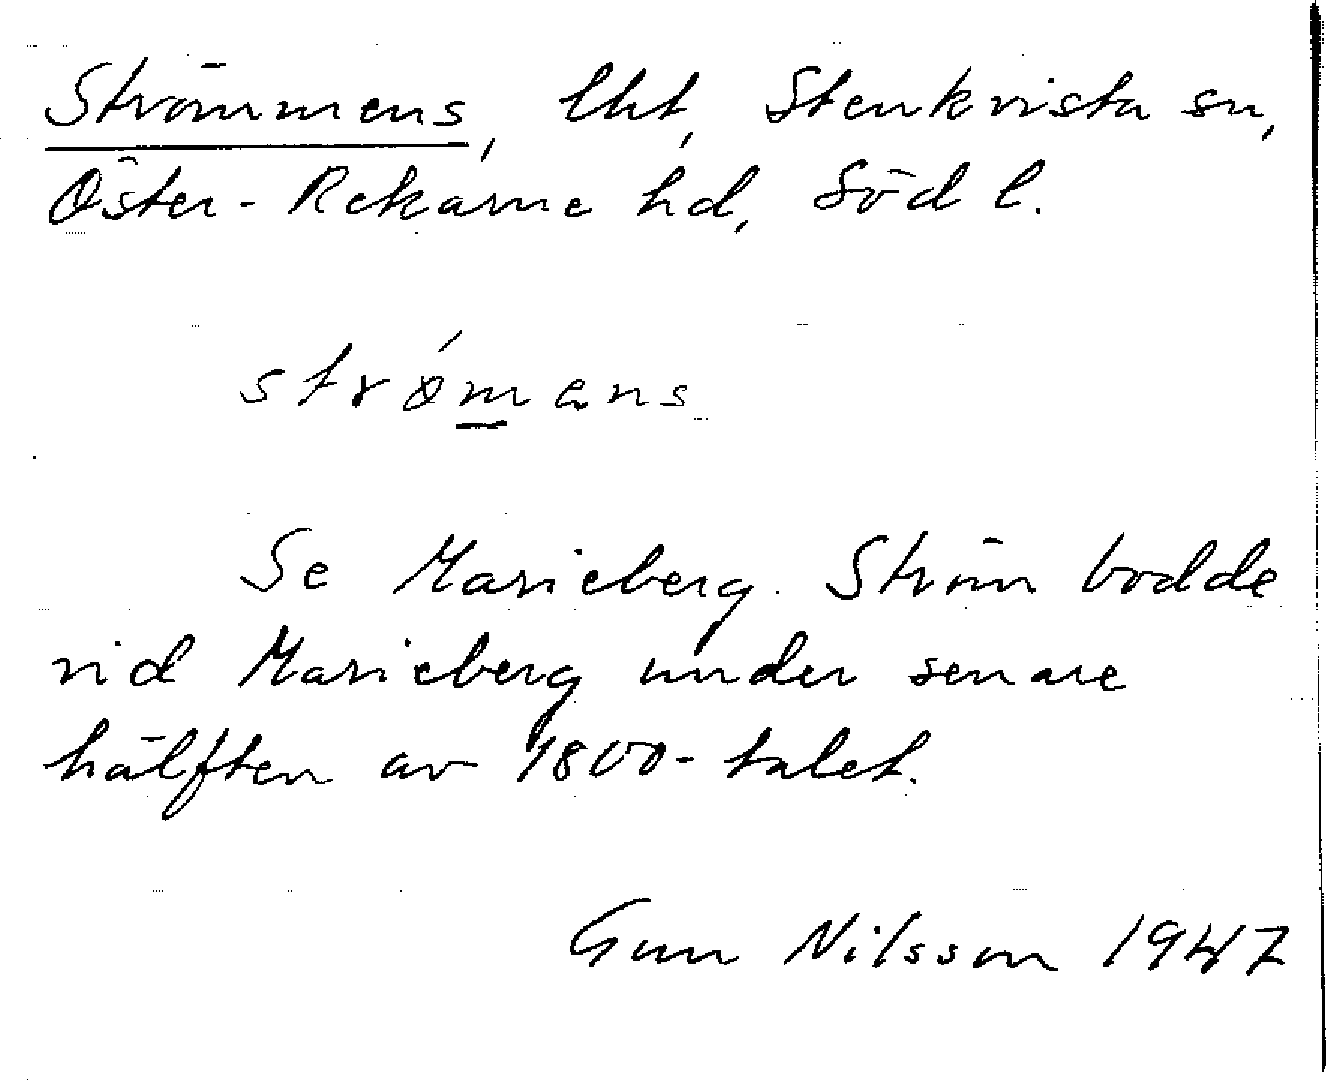 Strömmens, lht, Stenkvista sn,
Öster-Rekarne hd, Södl.
strǿmans
Se Marieberg. Ström bodde
vid Marieberg under senare
hälften av 1800-talet.
Gun Nilsson 1947